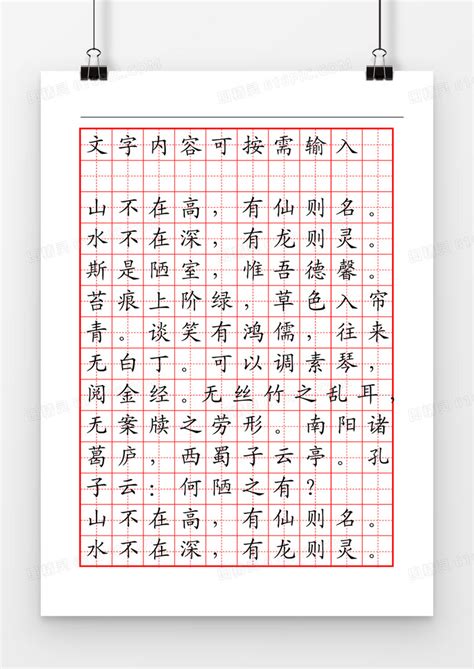 文字内容可按需输入
山不在高，有仙则名。
水不在深，有龙则灵。
斯是陋室，惟吾德馨。
苔痕上阶绿，草色入帘
青。谈笑有鸿儒，往来
无白丁。可以调素琴，
阅金经。无丝竹之乱耳，
无案牍之劳形。南阳诸
葛庐，西蜀子云亭。孔
子云：何陋之有？
山不在高，有仙则名。
水不在深，有龙则灵。